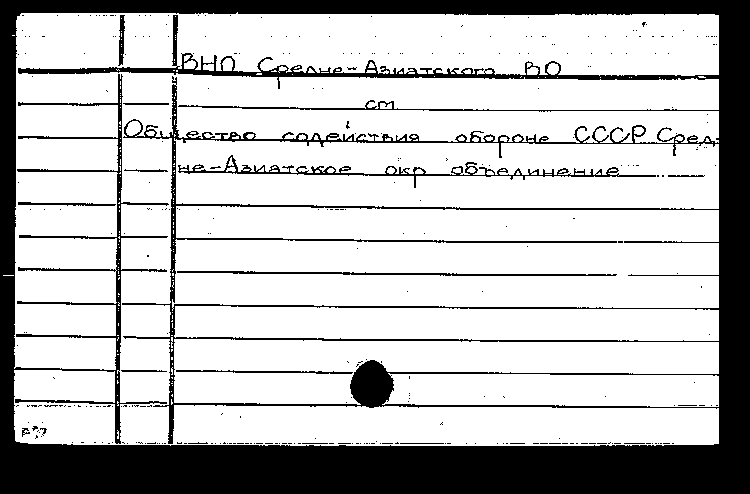 ВНО Средне-Азиатского ВО
см
Общество содействия обороне СССР Сред-
не-Азиатское окр объединение